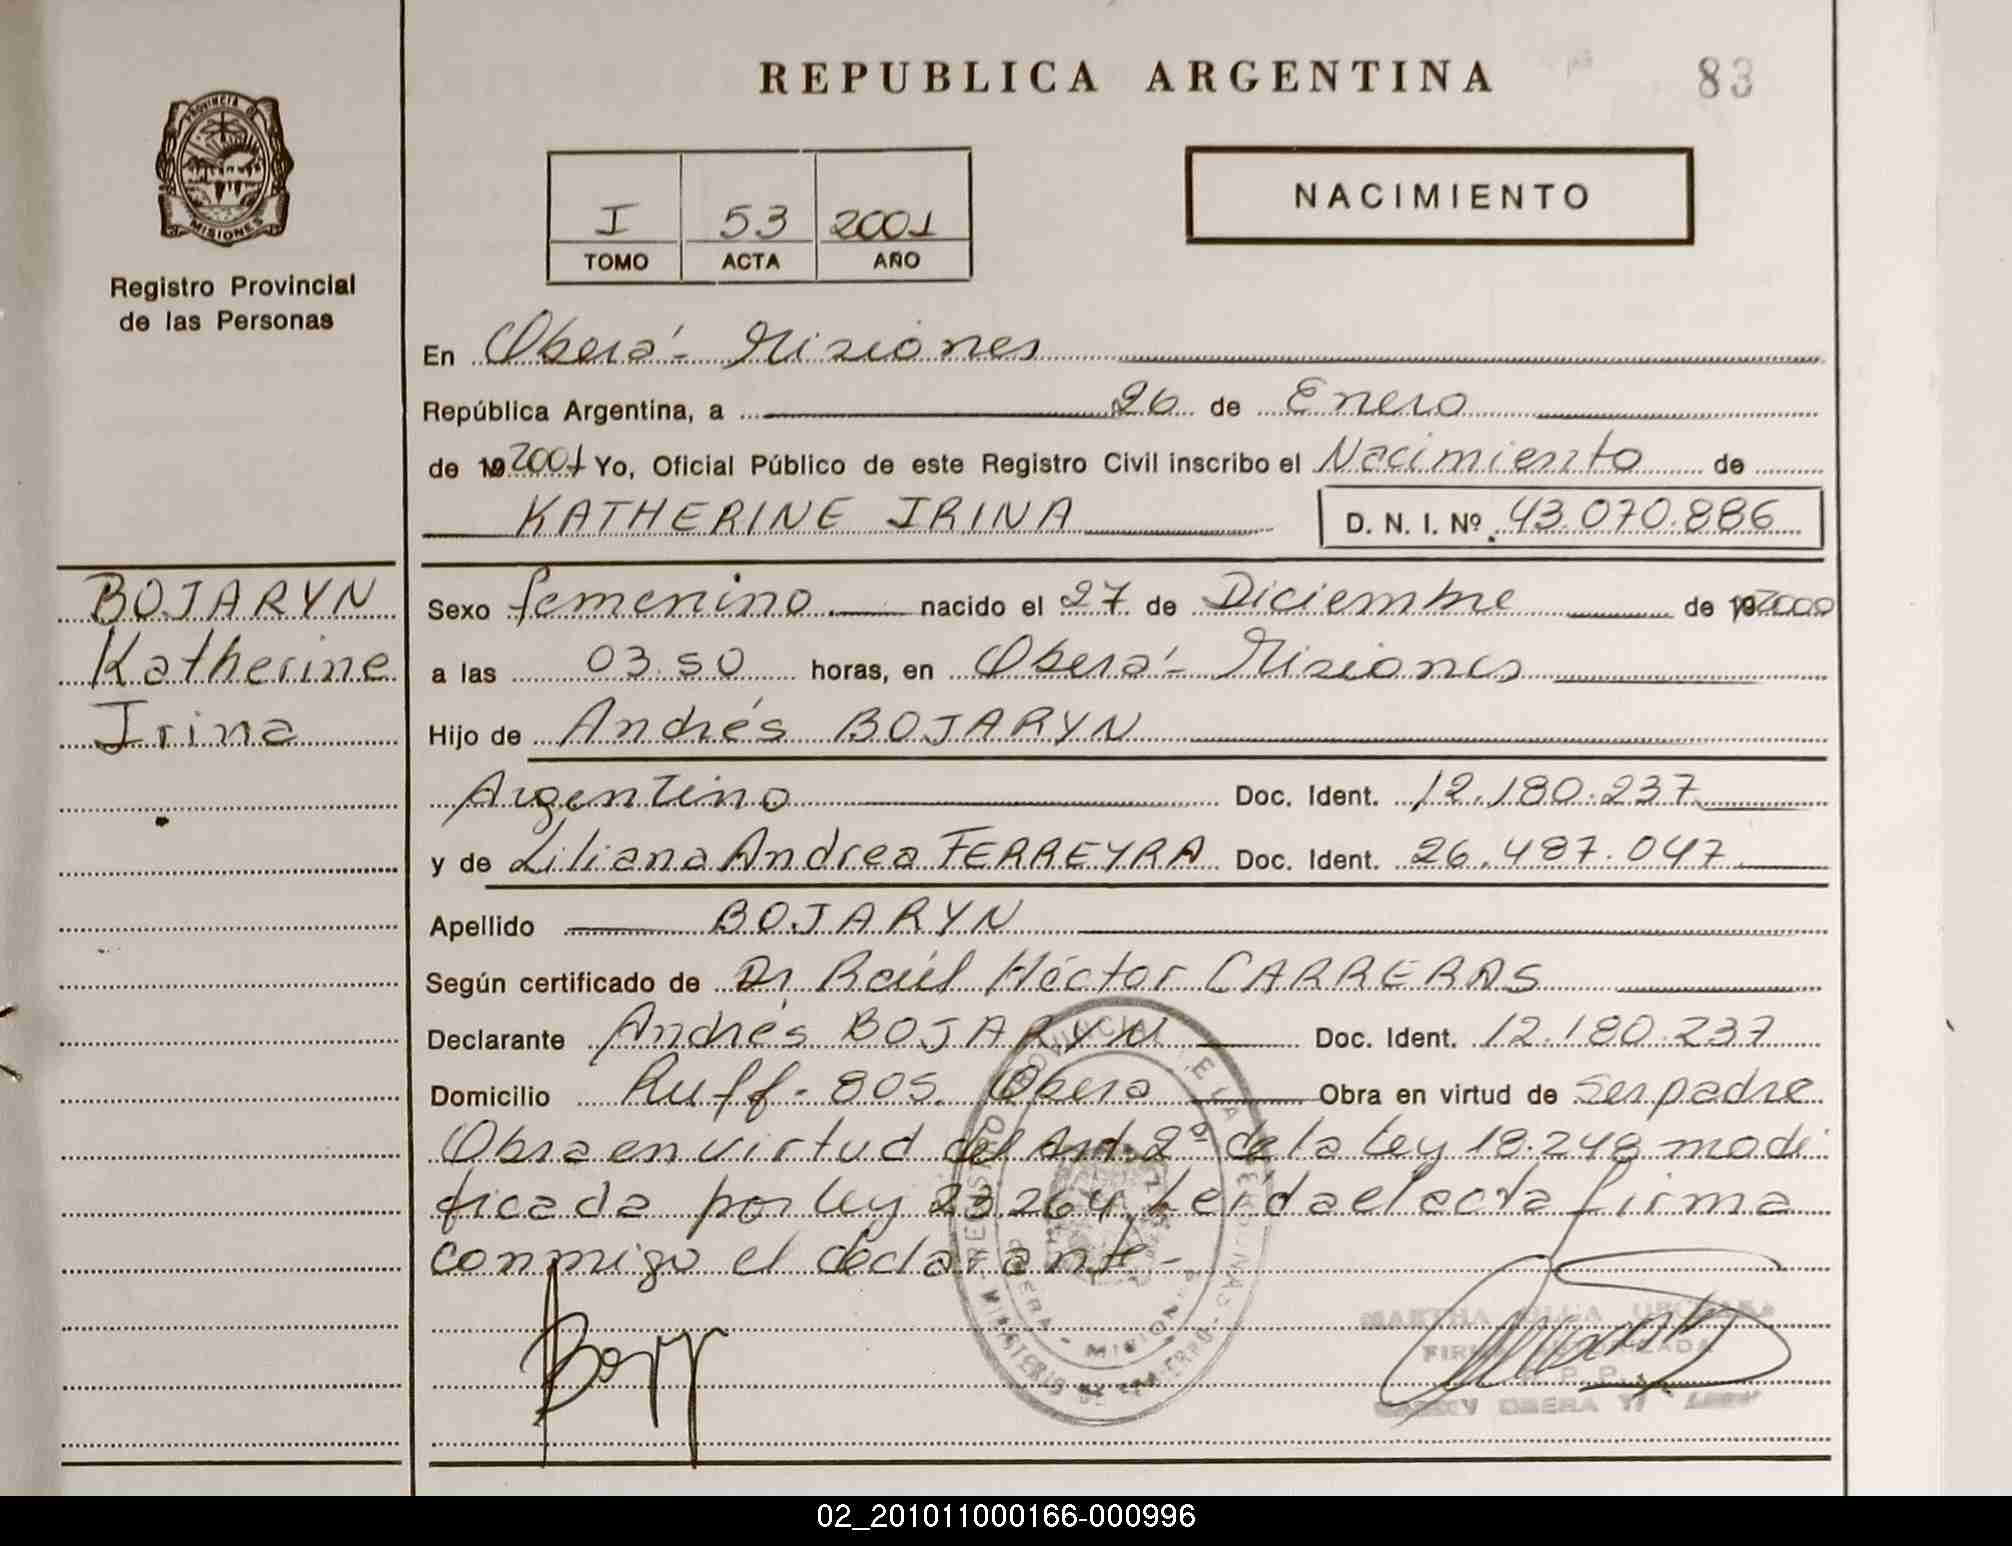 REPUBLICA ARGENTINA
83
PROVINCIA DE
MISIONES
Registro Provincial
de las Personas
I 53 2001
TOMO ACTA AÑO
NACIMIENTO
En Oberá - Misiones
República Argentina, a 26 de Enero
de 19 2001 Yo, Oficial Público de este Registro Civil inscribo el Nacimiento de
KATHERINE IRINA D. N. I. Nº 43.070.886
BOJARYN
Katherine
Irina
Sexo femenino nacido el 27 de Diciembre de 19 2000
a las 03.50 horas, en Oberá - Misiones
Hijo de Andrés BOJARYN
Argentino Doc. Ident. 12.180.237
y de Liliana Andrea FERREYRA Doc. Ident. 26.487.047
Apellido BOJARYN
Según certificado de Dr Raúl Héctor CARRERAS
Declarante Andrés BOJARYN Doc. Ident. 12.180.237
Domicilio Ruff - 805. Obera Obra en virtud de ser padre
Obra en virtud del Art. 2º de la ley 18.248 modi
ficada por ley 23.264. Leída el acta firma
conmigo el declarante -
MARTHA
FIRMA AUTORIZADA
OBERA
02_201011000166-000996